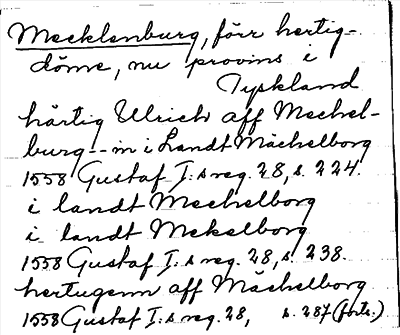 Mecklenburg, förr hertig-
döme, nu provins i
Tyskland
härtig Ulrich aff Mechel-
burg -- m i Landt Mächelborg
1558 Gustaf I:s reg. 28, s. 224.
i landt Mechelborg
i landt Mekelborg
1558 Gustaf I:s reg. 28, s. 238.
hertugenn aff Mächelborg
1558 Gustaf I:s reg. 28, s. 287 (forts.)